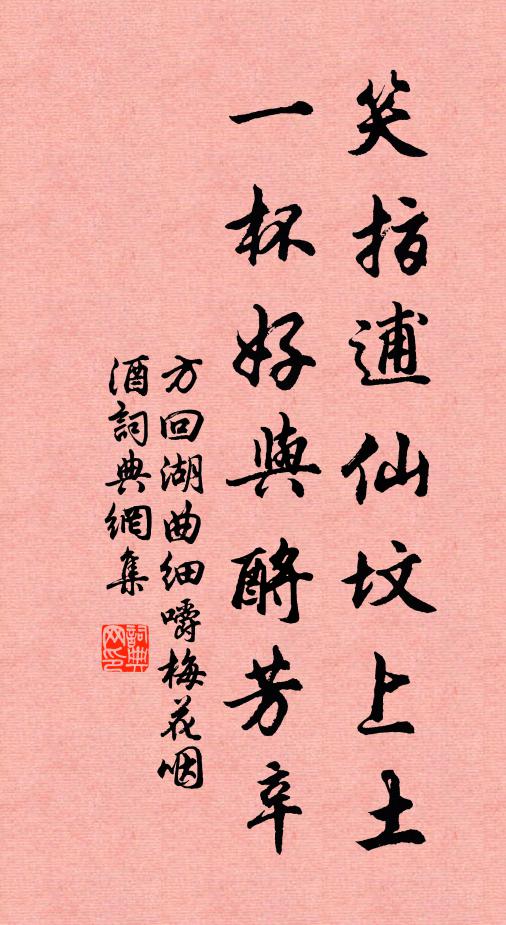 笑指逋仙坟上土
一杯好與酹芳辛
方回湖曲细嚼梅花咽
酒詞典網集
詞典网印